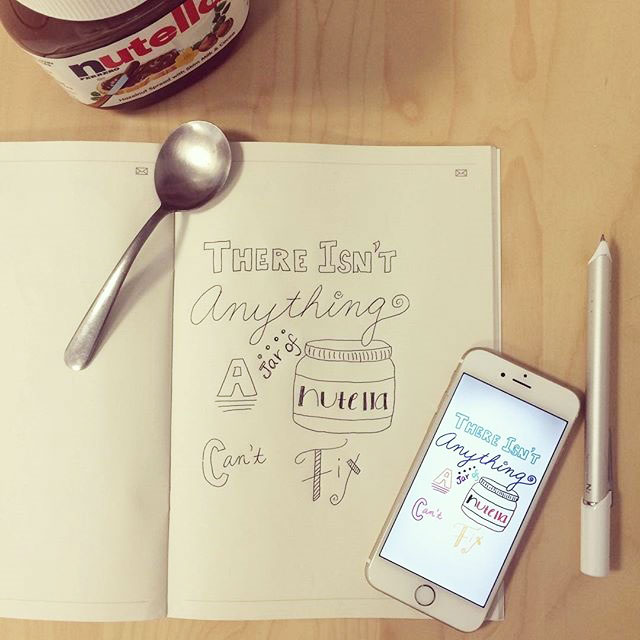 nutella
FERRERO
Hazelnut Spread with Skim Milk & Cocoa
THERE ISN'T
Anything
A Jar of
nutella
Can't Fix
THERE ISN'T
Anything
A Jar of
nutella
Can't Fix
N